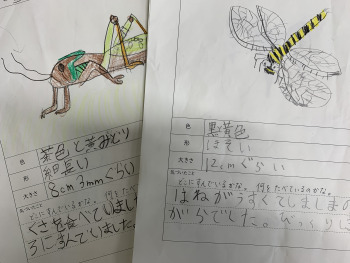 色 茶色と黄みどり
形 細長い
大きさ 8cm3mmぐらい
気づいたこと
どこにすんでいるかな。何をたべ
くさを食べていまし
ろにすんでいました。
色 黒黄色
形 ほそい
大きさ 12cmぐらい
気づいたこと
どこにすんでいるかな。何をたべているのかな。
はねがうすくてしましまの
がらでした。びっくり